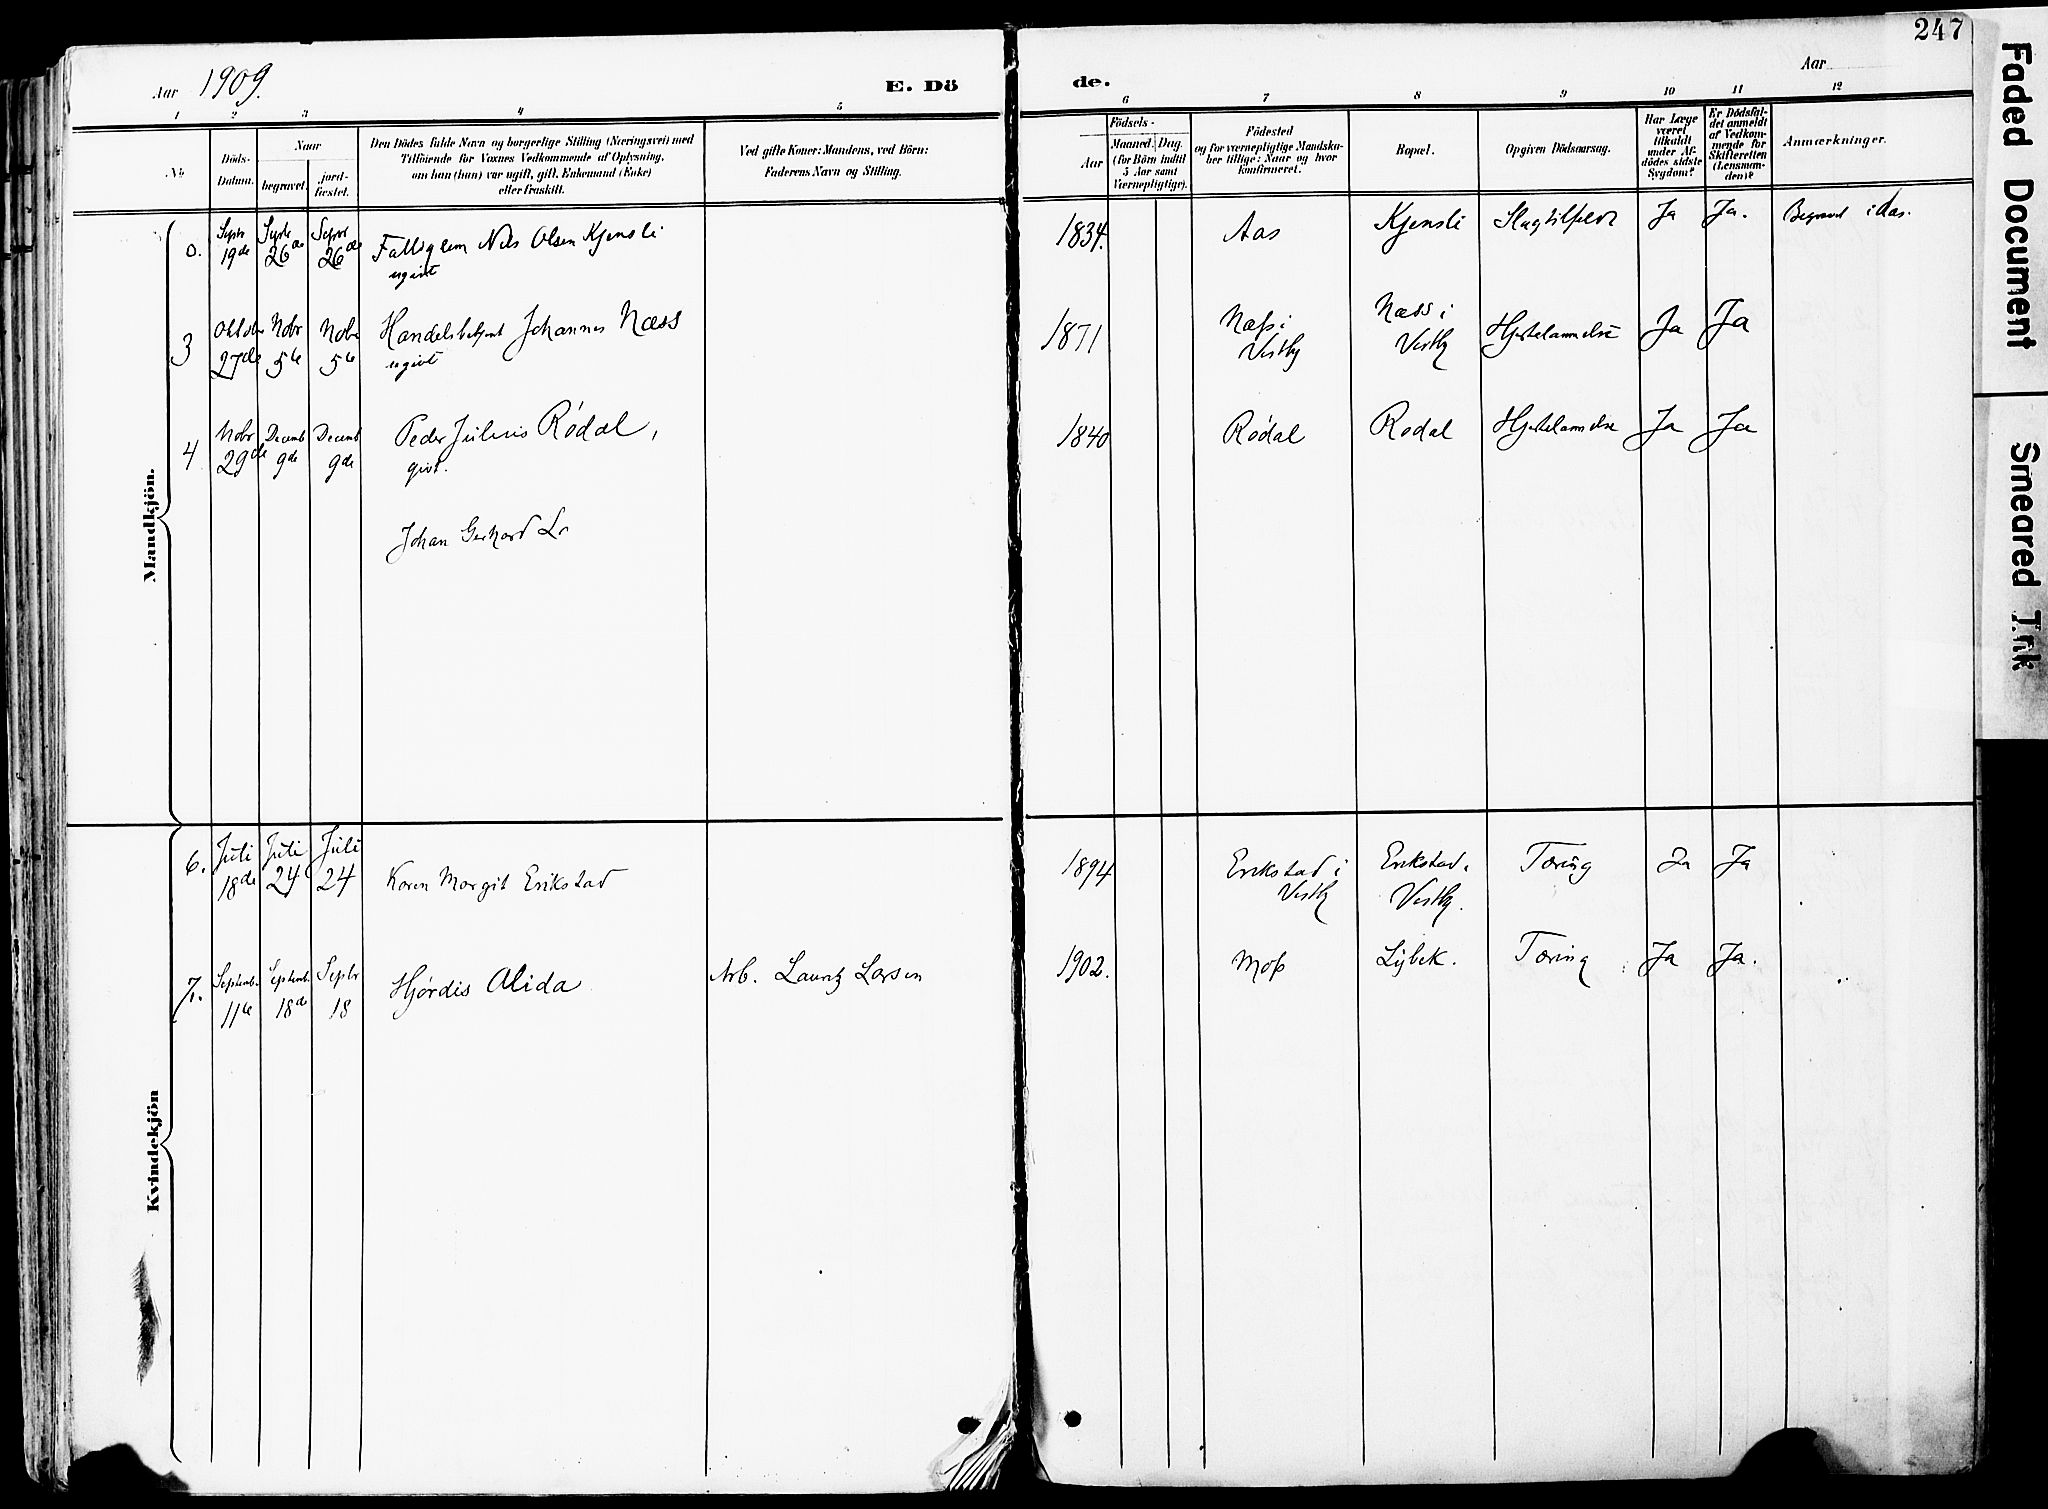 247
Faded Document
Smeared Ink
Aar 1909.
E. Dö
de.
Aar
1 2 3 4 5 6 7 8 9 10 11 12
No
Döds-
Datum.
Naar
begravet.
jord-
fæstet.
Den Dödes fulde Navn og borgerlige Stilling (Næringsvei) med
Tilföiende for Voxnes Vedkommende af Oplysning,
om han (hun) var ugift, gift, Enkemand (Enke)
eller fraskilt.
Ved gifte Koner: Mandens, ved Börn:
Faderens Navn og Stilling.
Födsels-
Aar
Maaned. Dag.
(for Börn indtil
5 Aar samt
Værnepligtige).
Födested
og for værnepligtige Mandska-
ber tillige: Naar og hvor
konfirmeret.
Bopæl.
Opgiven Dödsaarsag.
Har Læge
været
tilkaldt
under Af-
dödes sidste
Sygdom?
Er Dödsfal-
det anmeldt
af Vedkom-
mende for
Skifteretten
(Lensman-
den)?
Anmærkninger.
Mandkjön.
0. Septr 19de Septr 26de Septr 26de Fattiglem Nils Olsen Kjensli 1834. Aas Kjensli Slagtilfælde Ja Ja. Begravet i Aas.
ugivt
3 Oktober 27de Nobr 5te Nobr 5te Handelsbetjent Johannes Næss 1871 Næss i Vestby Næss i Vestby Hjertelammelse Ja Ja
ugivt
4. Nobr 29de Decemb 9de Decemb 9de Peder Julius Rödal, 1840 Rödal Rodal Hjertelammelse Ja Ja
givt.
Johan Gerhard L
Kvindekjön
6. Juli 18de Juli 24 Juli 24 Karen Margit Erikstad 1894 Erikstad i Vestby Erikstad i Vestby. Tæring Ja Ja
7. Septemb. 11te Septemb. 18de Septbr 18 Hjördis Alida Arb. Lauritz Larsen 1902. Moss Lybek. Tæring Ja Ja.